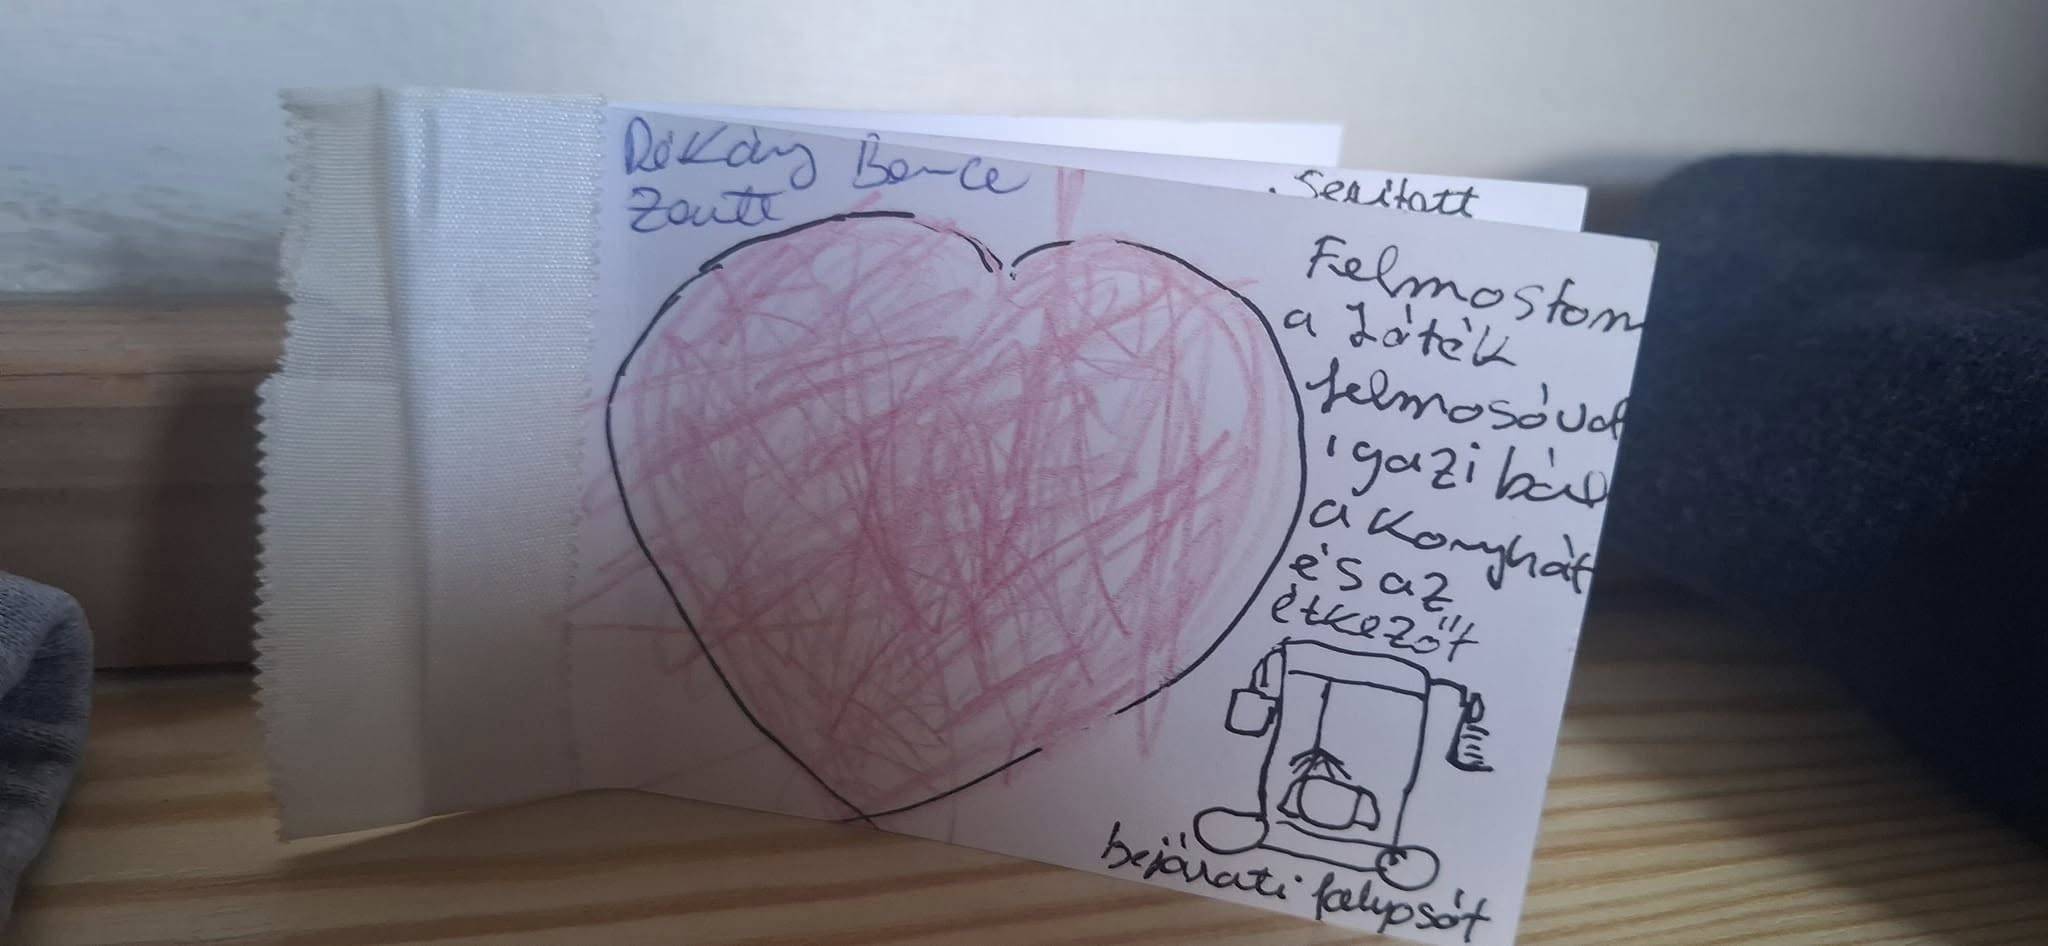 Rékásy Bence
Zsutt
. Serített
Felmostom
a Játék
felmosóval
igaziból
a konyhát
és az
étkezőt
bejárati falyosót